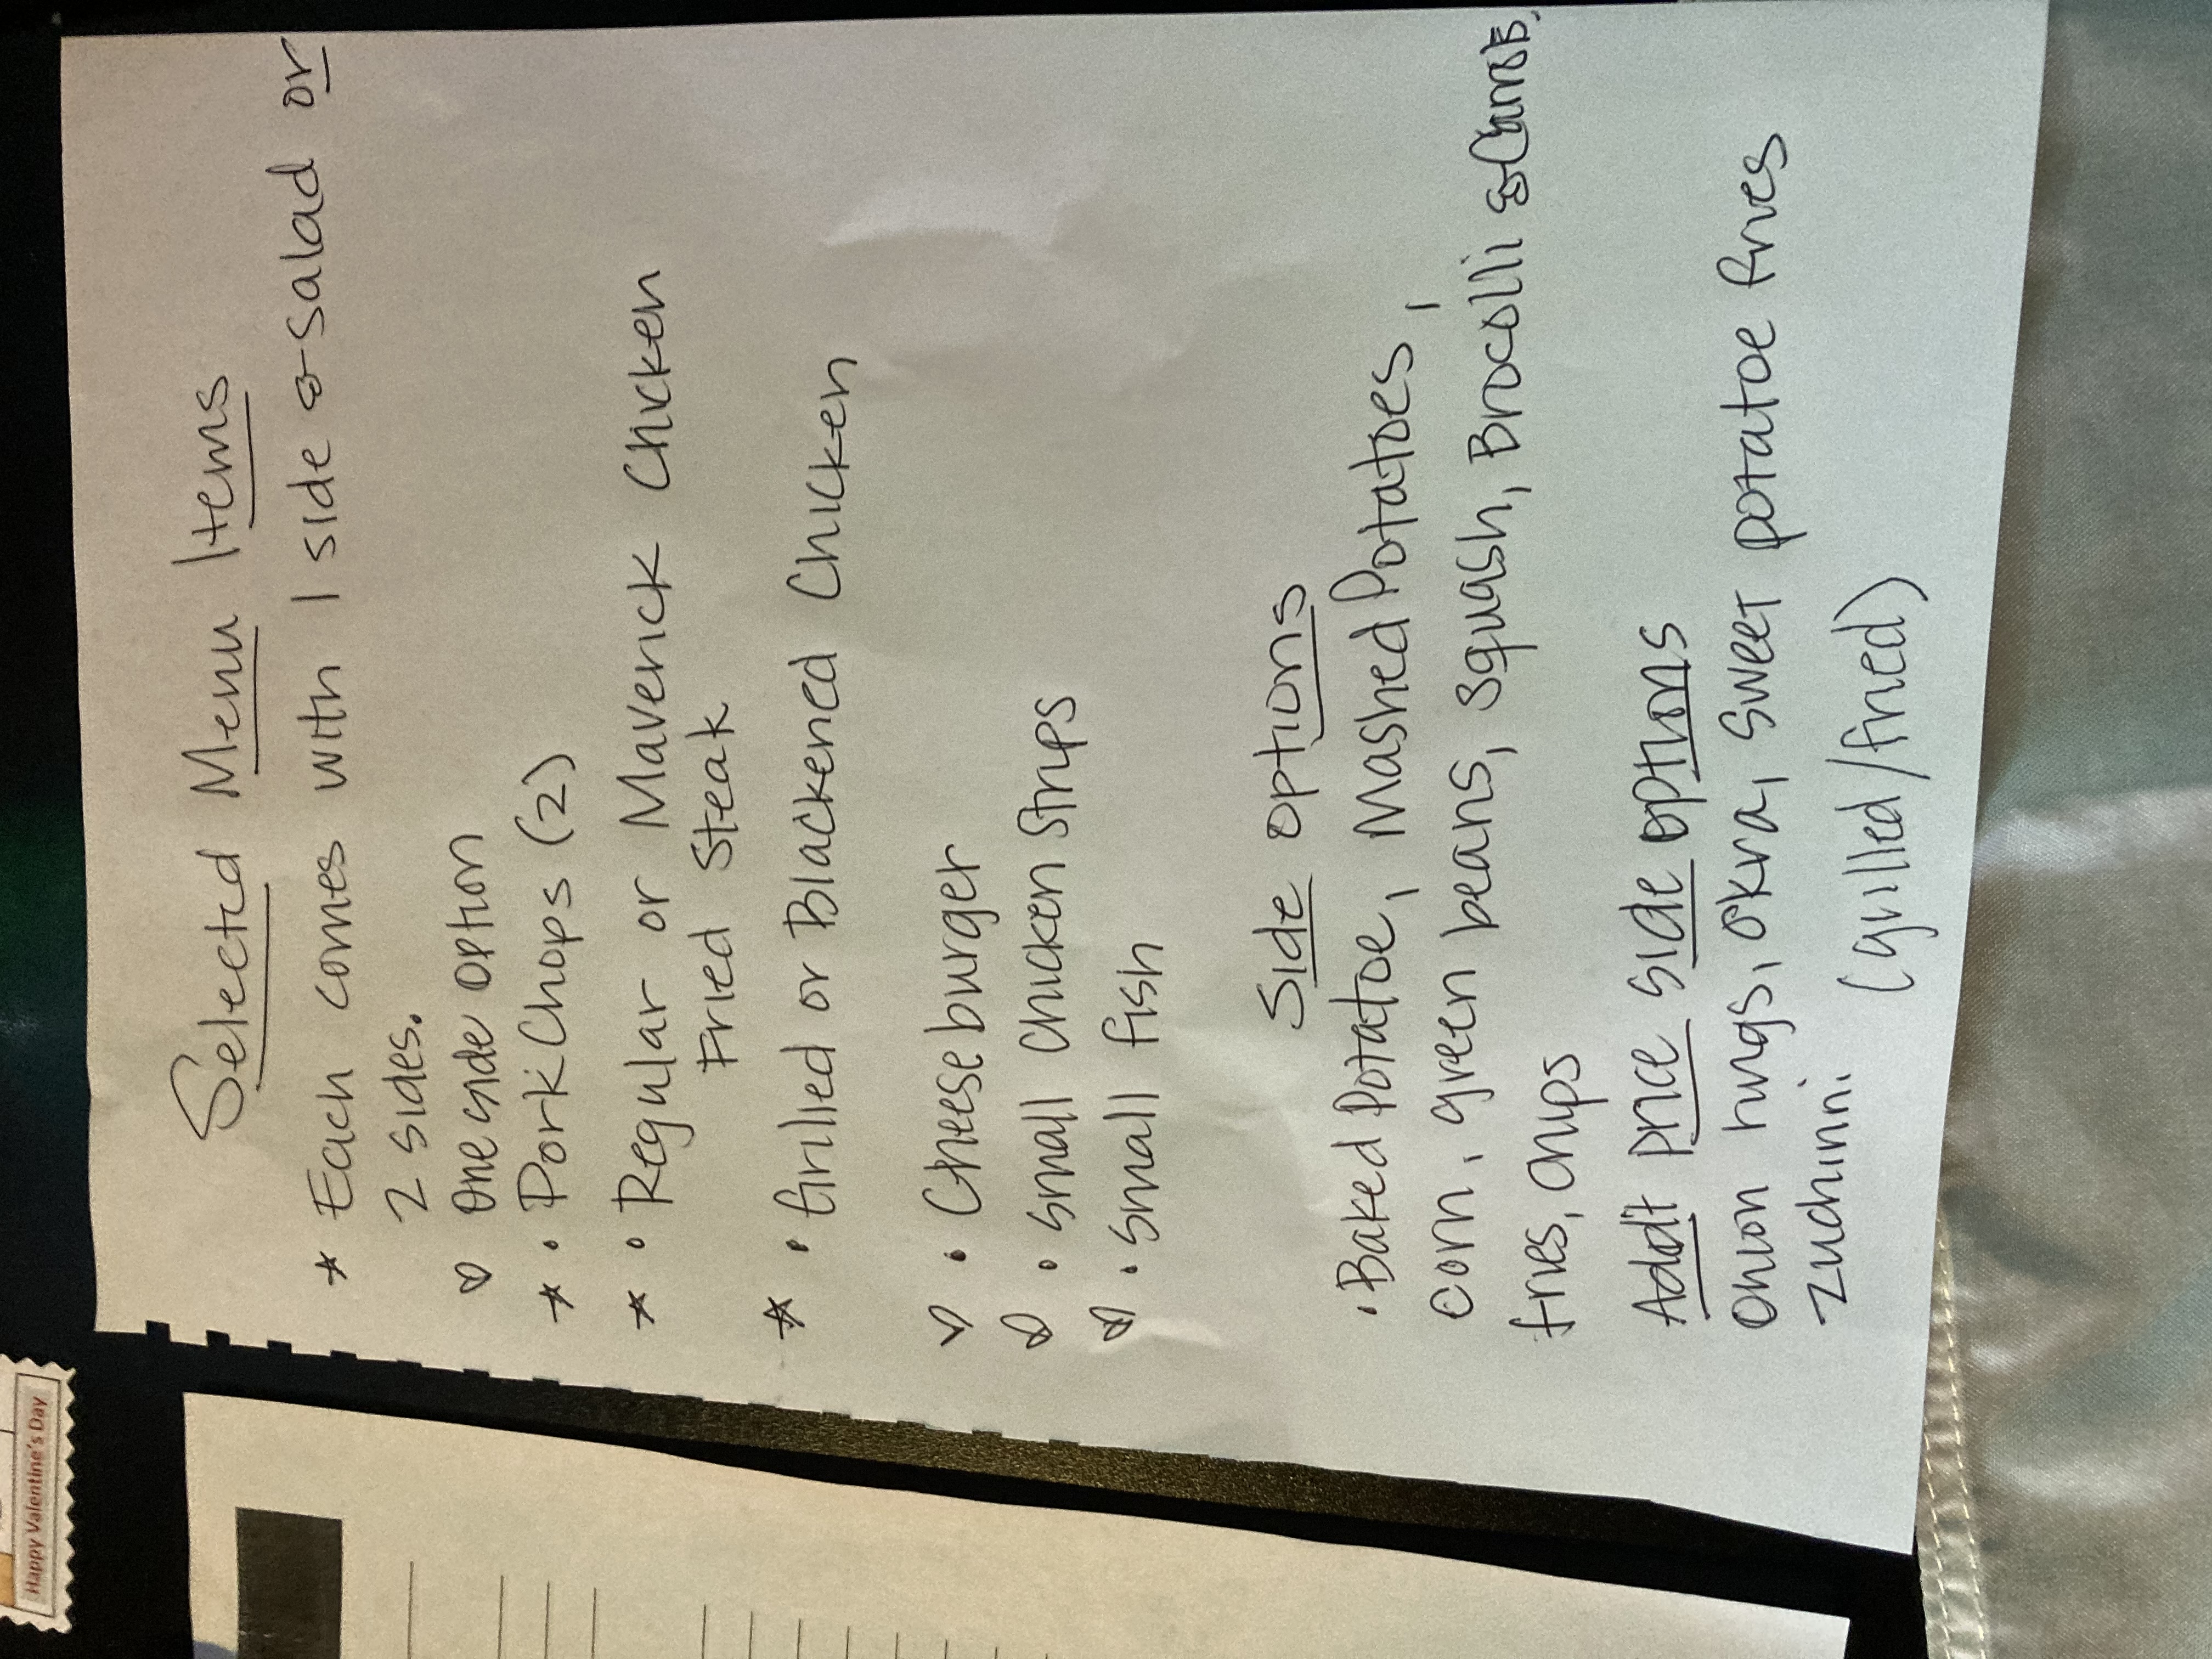 Selected Menu Items
* Each comes with 1 side & salad or
2 sides.
♡ One side option
* • Pork Chops (2)
* • Regular or Maverick Chicken
Fried Steak
* • Grilled or Blackened Chicken
♡ • Cheeseburger
♡ • Small Chicken Strips
♡ • Small fish
Side options
• Baked Potatoe, Mashed Potatoes,
corn, green beans, squash, Brocolli & Carrots,
fries, chips
Add't price side options
Onion rings, okra, sweet potatoe fries
zuchinni (grilled/fried)
Happy Valentine's Day